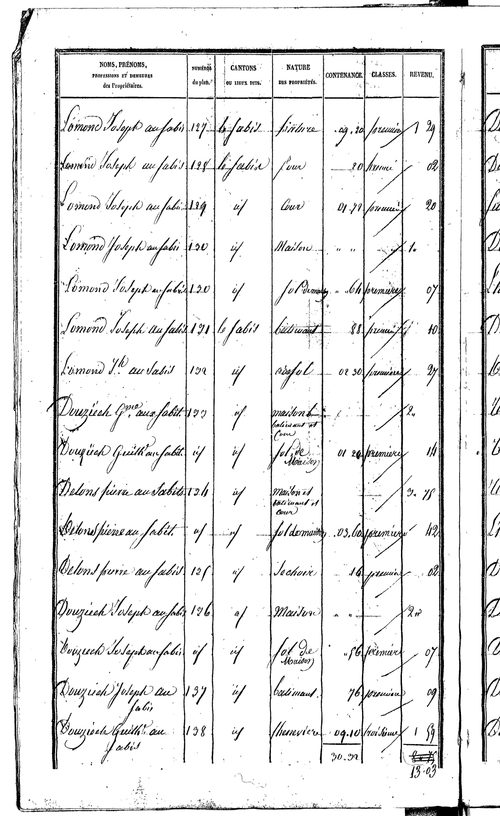 NOMS, PRÉNOMS, PROFESSIONS ET DEMEURES des Propriétaires. NUMÉROS du plan. CANTONS OU LIEUX DITS. NATURE DES PROPRIÉTÉS. CONTENANCE. CLASSES. REVENU.
Lomond Joseph au Sabis 127 le Sabis 09.20 première 1 29
Lomond Joseph au Sabis 128 le Sabis Cour 20 02
Lomond Joseph au Sabis 129 id Cour 01.72 première 20
Lomond Joseph au Sabis 130 id Maison " " 1 "
Lomond Joseph au Sabis 130 id Sol de maison " 64 première 07
Lomond Joseph au Sabis 131 le Sabis batimant 88 première 10
Lomond Jh au Sabis 132 id 02 30 première 27
Douziech Gme au Sabit 133 id maison batimant et Cour 2 "
Douziech Guilhe au Sabit id id Sol de Maison 01 24 première 14
Delons pierre au Sabit 134 id maison et batimant et Cour 3 75
Delons pierre au Sabit id id Sol de maison 03.60 première 42
Delons pierre au Sabis 135 id Sechoir 16 première 02
Douziech Joseph au Sabis 136 id Maison " " 2 "
Douziech Joseph au Sabis id id Sol de Maison " 56 première 07
Douziech Joseph au Sabis 137 id batimant 76 première 09
Douziech Guilhe au Sabis 138 id chenevière 09.10 troisième 1 59
30.32
13.03